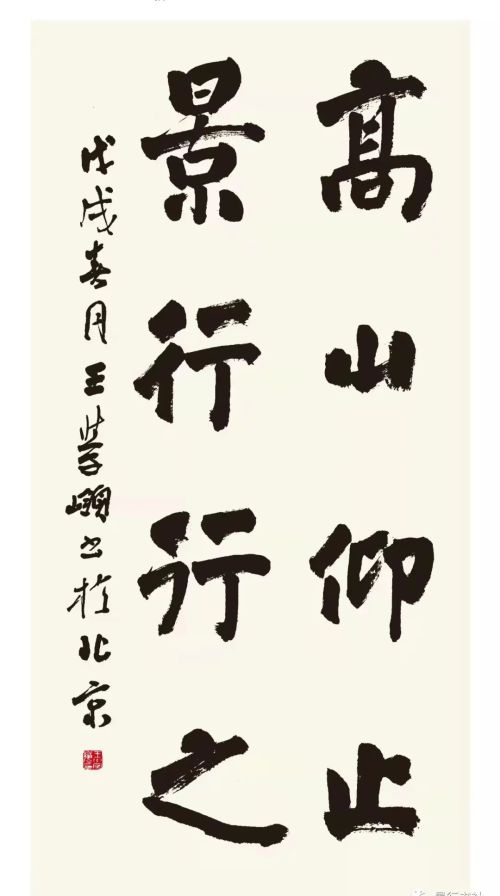 高山仰止
景行行之
戊戌春月王学岭书於北京